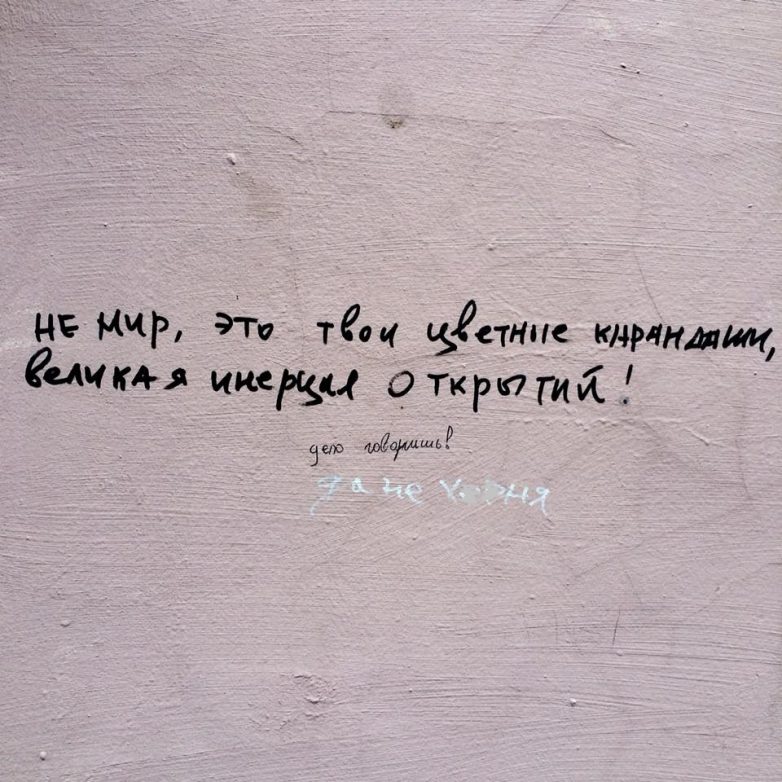 НЕ МИР, ЭТО ТВОИ ЦВЕТНЫЕ КАРАНДАШИ,
ВЕЛИКАЯ ИНЕРЦИЯ ОТКРЫТИЙ!
дело говоришь!
да не херня